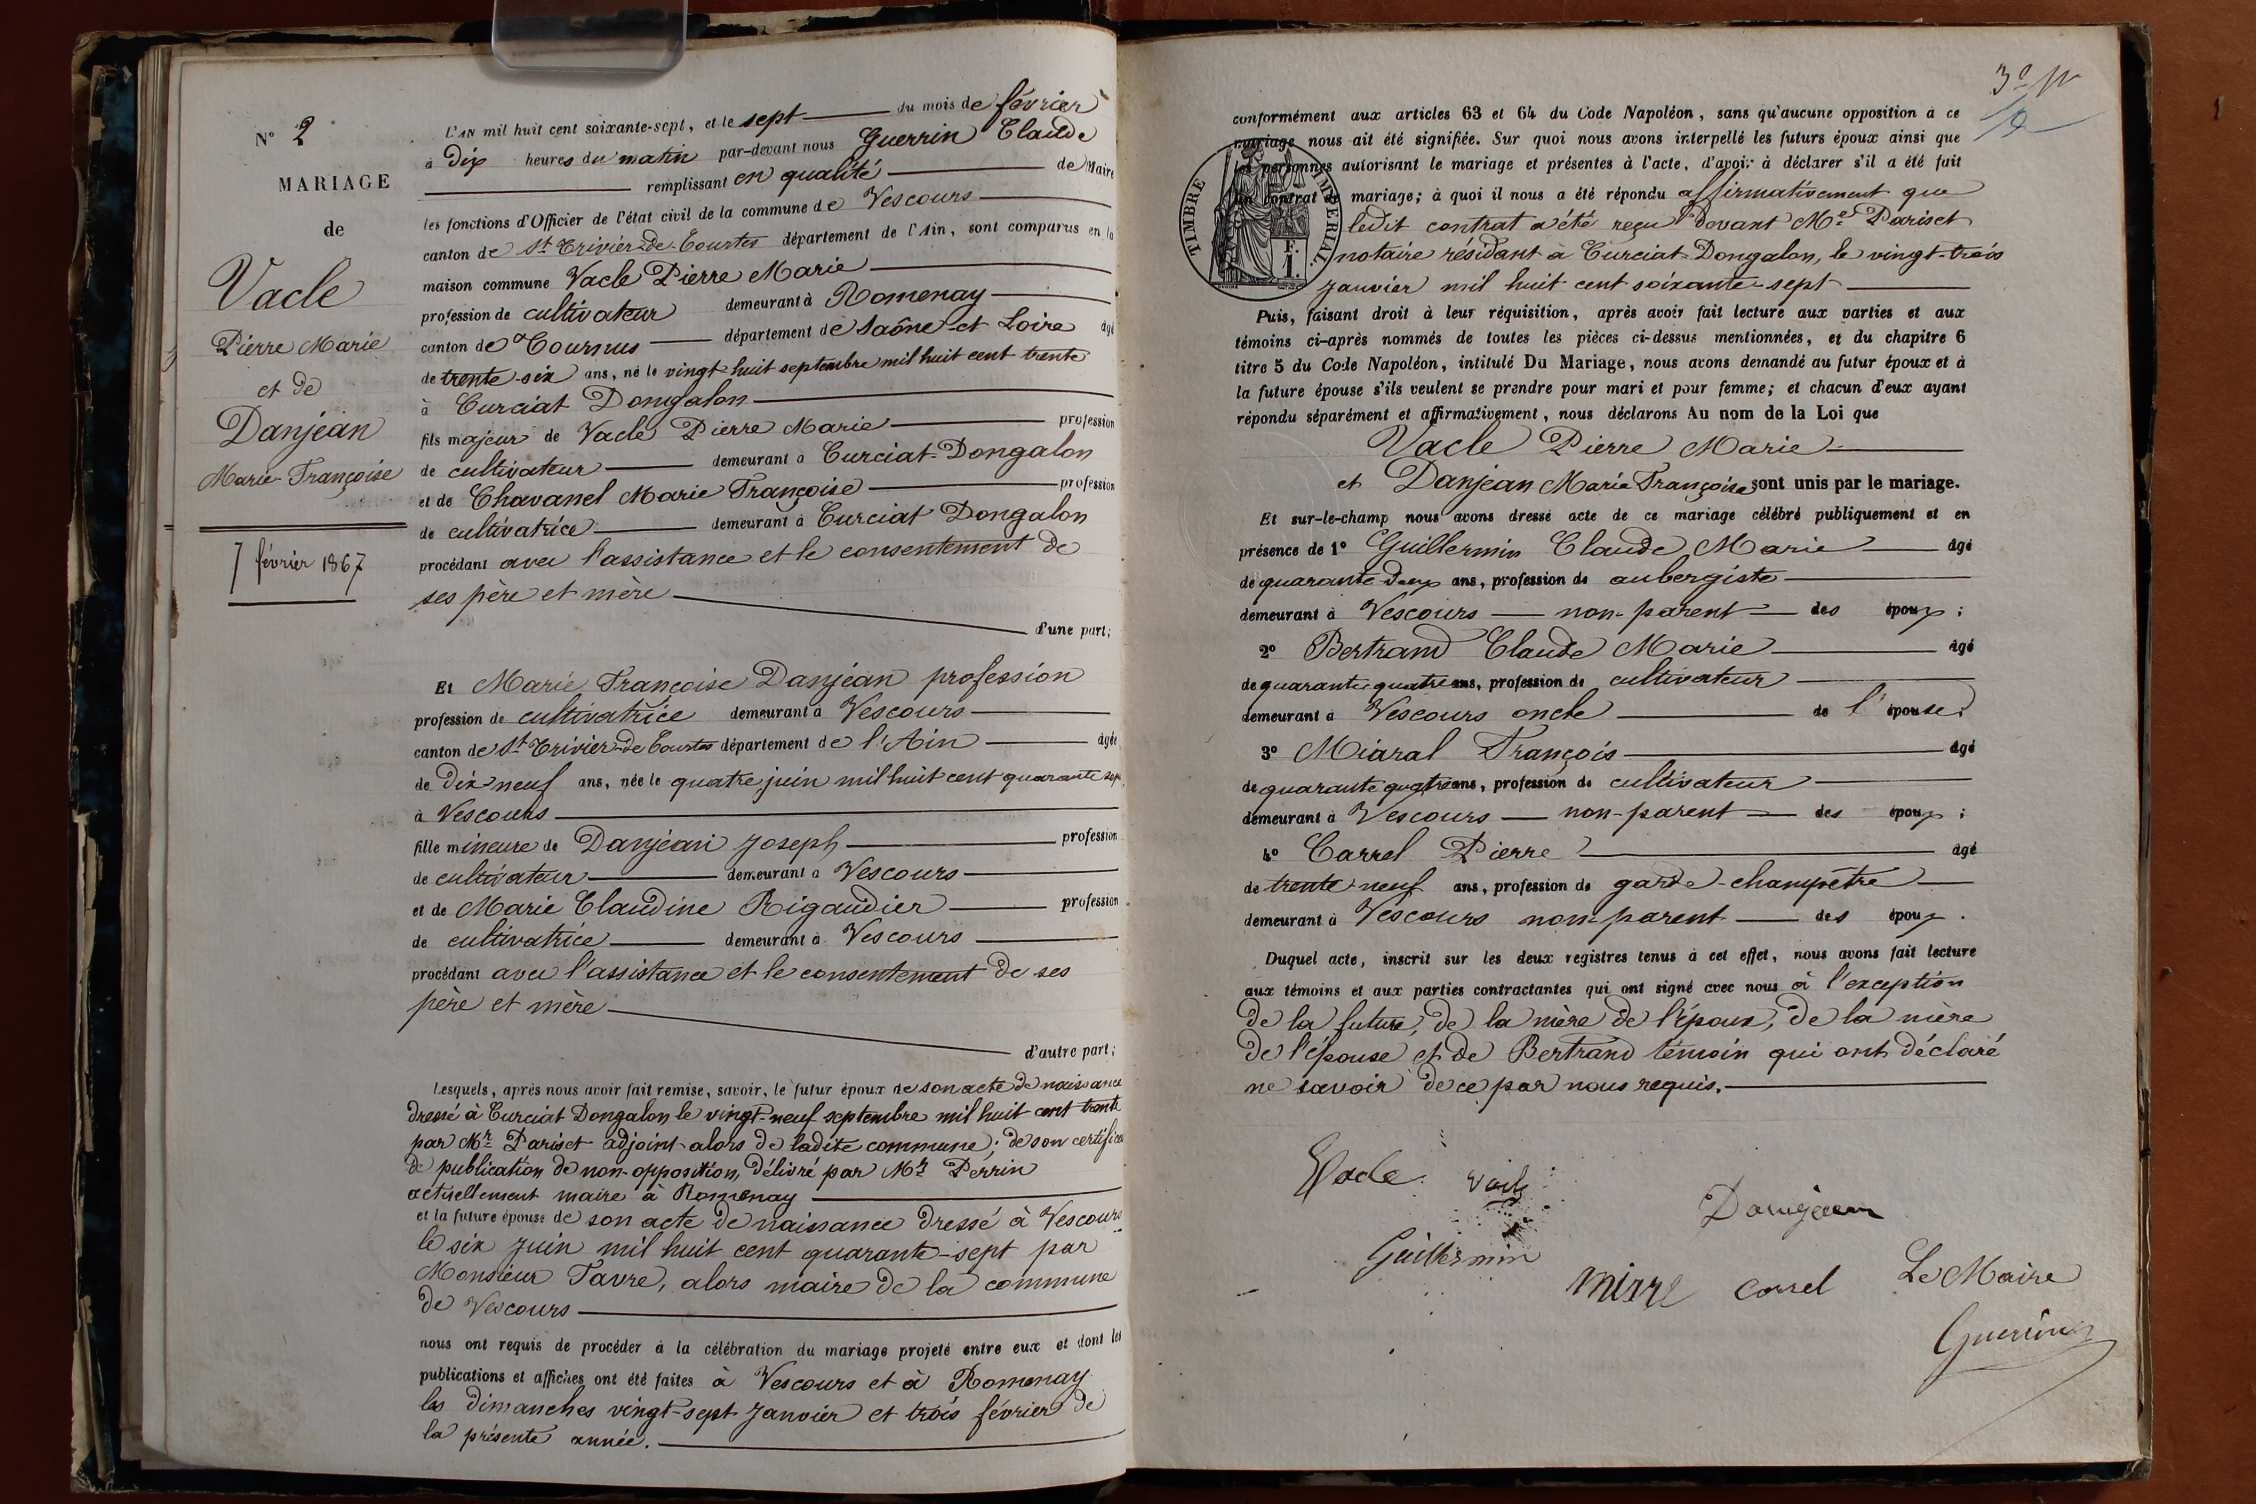 N° 2
MARIAGE
de
Vacle
Pierre Marie
et de
Danjean
Marie-Françoise
7 février 1867
L'AN mil huit cent soixante-sept, et le sept du mois de février
à dix heures du matin par-devant nous Guerrin Claude
remplissant en qualité de Maire
les fonctions d'Officier de l'état civil de la commune de Vescours
canton de St Trivier-de-Courtes département de l'Ain, sont comparus en la
maison commune Vacle Pierre Marie
profession de cultivateur demeurant à Romenay
canton de Tournus département de Saône-et Loire âgé
de trente-six ans, né le vingt-huit septembre mil huit cent trente
à Curciat Dongalon
fils majeur de Vacle Pierre Marie profession
de cultivateur demeurant à Curciat-Dongalon
et de Chavanel Marie Françoise profession
de cultivatrice demeurant à Curciat Dongalon
procédant avec l'assistance et le consentement de
ses père et mère
d'une part;
Et Marie Françoise Danjean profession
profession de cultivatrice demeurant à Vescours
canton de St Trivier-de Courtes département de l'Ain âgée
de dix-neuf ans, née le quatre juin mil huit cent quarante sept
à Vescours
fille mineure de Danjean Joseph profession
de cultivateur demeurant à Vescours
et de Marie Claudine Rigaudier profession
de cultivatrice demeurant à Vescours
procédant avec l'assistance et le consentement de ses
père et mère
d'autre part;
Lesquels, après nous avoir fait remise, savoir, le futur époux de son acte de naissance
dressé à Curciat Dongalon le vingt-neuf septembre mil huit cent trente
par Mr Pariset adjoint alors de ladite commune; de son certificat
de publication de non-opposition, délivré par Mr Perrin
actuellement maire à Romenay
et la future épouse de son acte de naissance dressé à Vescours
le six juin mil huit cent quarante-sept par
Monsieur Favre, alors maire de la commune
de Vescours
nous ont requis de procéder à la célébration du mariage projeté entre eux et dont les
publications et affiches ont été faites à Vescours et à Romenay
les dimanches vingt-sept Janvier et trois février de
la présente année.
conformément aux articles 63 et 64 du Code Napoléon, sans qu'aucune opposition à ce
mariage nous ait été signifiée. Sur quoi nous avons interpellé les futurs époux ainsi que
les personnes autorisant le mariage et présentes à l'acte, d'avoir à déclarer s'il a été fait
un contrat de mariage; à quoi il nous a été répondu affirmativement que
ledit contrat a été reçu devant Me Pariset
notaire résidant à Curciat-Dongalon, le vingt-trois
janvier mil huit cent soixante-sept
TIMBRE IMPERIAL.
F.
1.
Puis, faisant droit à leur réquisition, après avoir fait lecture aux parties et aux
témoins ci-après nommés de toutes les pièces ci-dessus mentionnées, et du chapitre 6
titre 5 du Code Napoléon, intitulé Du Mariage, nous avons demandé au futur époux et à
la future épouse s'ils veulent se prendre pour mari et pour femme; et chacun d'eux ayant
répondu séparément et affirmativement, nous déclarons Au nom de la Loi que
Vacle Pierre Marie
et Danjean Marie Françoise sont unis par le mariage.
Et sur-le-champ nous avons dressé acte de ce mariage célébré publiquement et en
présence de 1° Guillermin Claude Marie âgé
de quarante deux ans, profession de aubergiste
demeurant à Vescours non-parent des époux;
2° Bertrand Claude Marie âgé
de quarante-quatre ans, profession de cultivateur
demeurant à Vescours oncle de l'épouse;
3° Miaral François âgé
de quarante quatre ans, profession de cultivateur
demeurant à Vescours non-parent des époux;
4° Carrel Pierre âgé
de trente-neuf ans, profession de garde-champêtre
demeurant à Vescours non-parent des époux.
Duquel acte, inscrit sur les deux registres tenus à cet effet, nous avons fait lecture
aux témoins et aux parties contractantes qui ont signé avec nous à l'exception
de la future, de la mère de l'époux, de la mère
de l'épouse et de Bertrand témoin qui ont déclaré
ne savoir de ce par nous requis.
Vacle Vacle
Danjean
Guillermin
Carrel
Le Maire
Guerrin